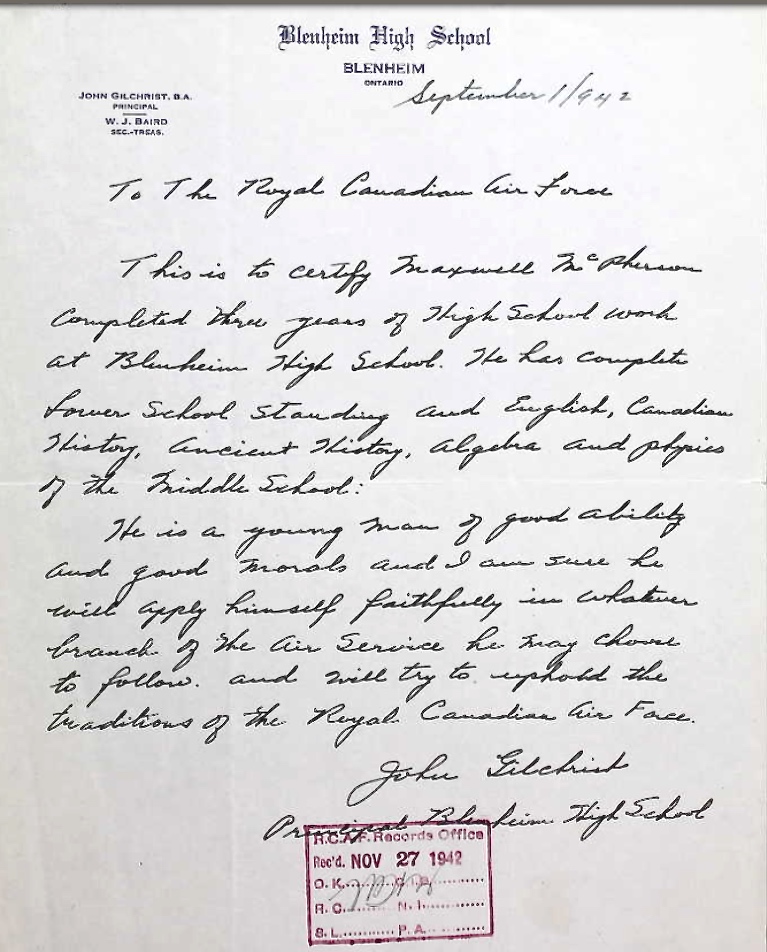 Blenheim High School
BLENHEIM
ONTARIO
September 1/942
JOHN GILCHRIST, B.A.
PRINCIPAL
W. J. BAIRD
SEC.-TREAS.
To The Royal Canadian Air Force
This is to certify Maxwell McPherson
completed three years of High School work
at Blenheim High School. He has complete
Lower School standing and English, Canadian
History, Ancient History, Algebra and physics
of the Middle School:
He is a young man of good ability
and good morals and I am sure he
will apply himself faithfully in whatever
branch of the Air Service he may choose
to follow. and will try to uphold the
traditions of the Royal Canadian Air Force.
John Gilchrist
Principal Blenheim High School
R.C.A.F. Records Office
Rec'd. NOV 27 1942
O.K.
R.C. N.I.
S.L. P.A.